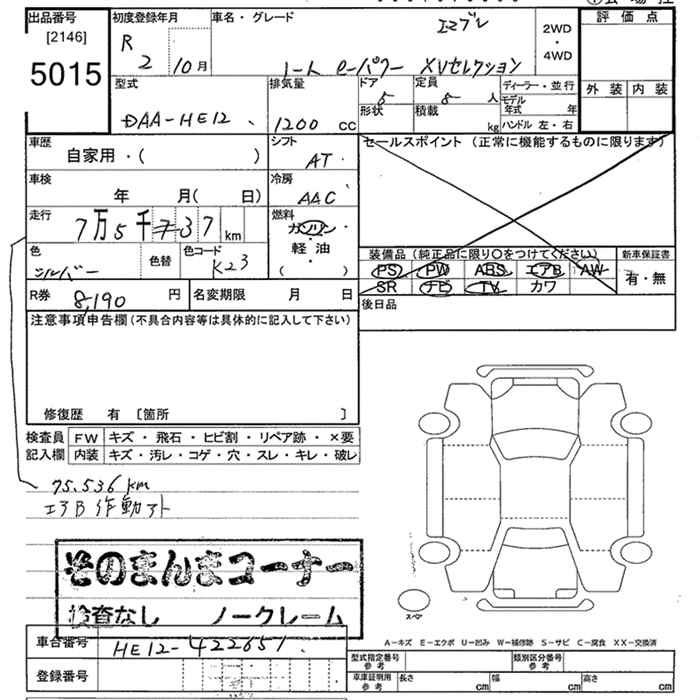 出品番号 初度登録年月 車名・グレード 評価点
[2146]
5015
R
2 10月
ノート e-パワー XVセレクション
2WD
・
4WD
外装 内装
型式 排気量 ドア 定員 ディーラー・並行
DAA-HE12 1200 cc 5 5 人
形状 積載 kg モデル年式 年
ハンドル 左・右
車歴 シフト セールスポイント(正常に機能するものに限ります)
自家用・( ) AT
車検 冷房
年 月( 日) AAC
走行 燃料
7万5千 37 km ガソリン
・
軽油
( )
色 色替 色コード
シルバー K23
装備品(純正品に限り○をつけてください) 新車保証書
PS PW ABS エアB AW 有・無
SR ナビ TV カワ
R券 8,190 円 名変期限 月 日
後日品
注意事項申告欄(不具合内容等は具体的に記入して下さい)
修復歴 有 [箇所 ]
検査員 FW キズ・飛石・ヒビ割・リペア跡・×要
記入欄 内装 キズ・汚レ・コゲ・穴・スレ・キレ・破レ
75,536 km
エアB作動アト
そのまんまコーナー
検査なし ノークレーム
スペア
A-キズ E-エクボ U-凹み W-補修跡 S-サビ C-腐食 XX-交換済
車台番号 HE12-422651
登録番号
型式指定番号 参考 類別区分番号 参考
車庫証明用 参考 長さ cm 幅 cm 高さ cm